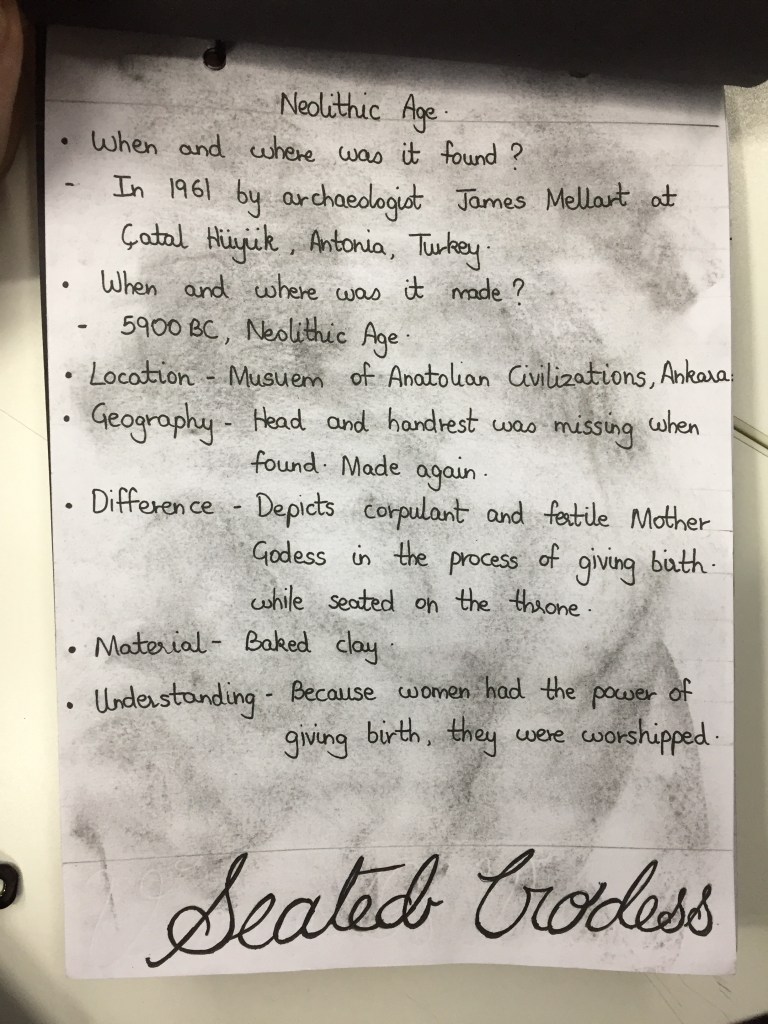 Neolithic Age.
• When and where was it found?
- In 1961 by archaeologist James Mellart at
Çatal Hüyük, Antonia, Turkey.
• When and where was it made?
- 5900 BC, Neolithic Age.
• Location - Musuem of Anatolian Civilizations, Ankara.
• Geography - Head and handrest was missing when
found. Made again.
• Difference - Depicts corpulant and fertile Mother
Godess in the process of giving birth.
while seated on the throne.
• Material - Baked clay.
• Understanding - Because women had the power of
giving birth, they were worshipped.
Seated Godess